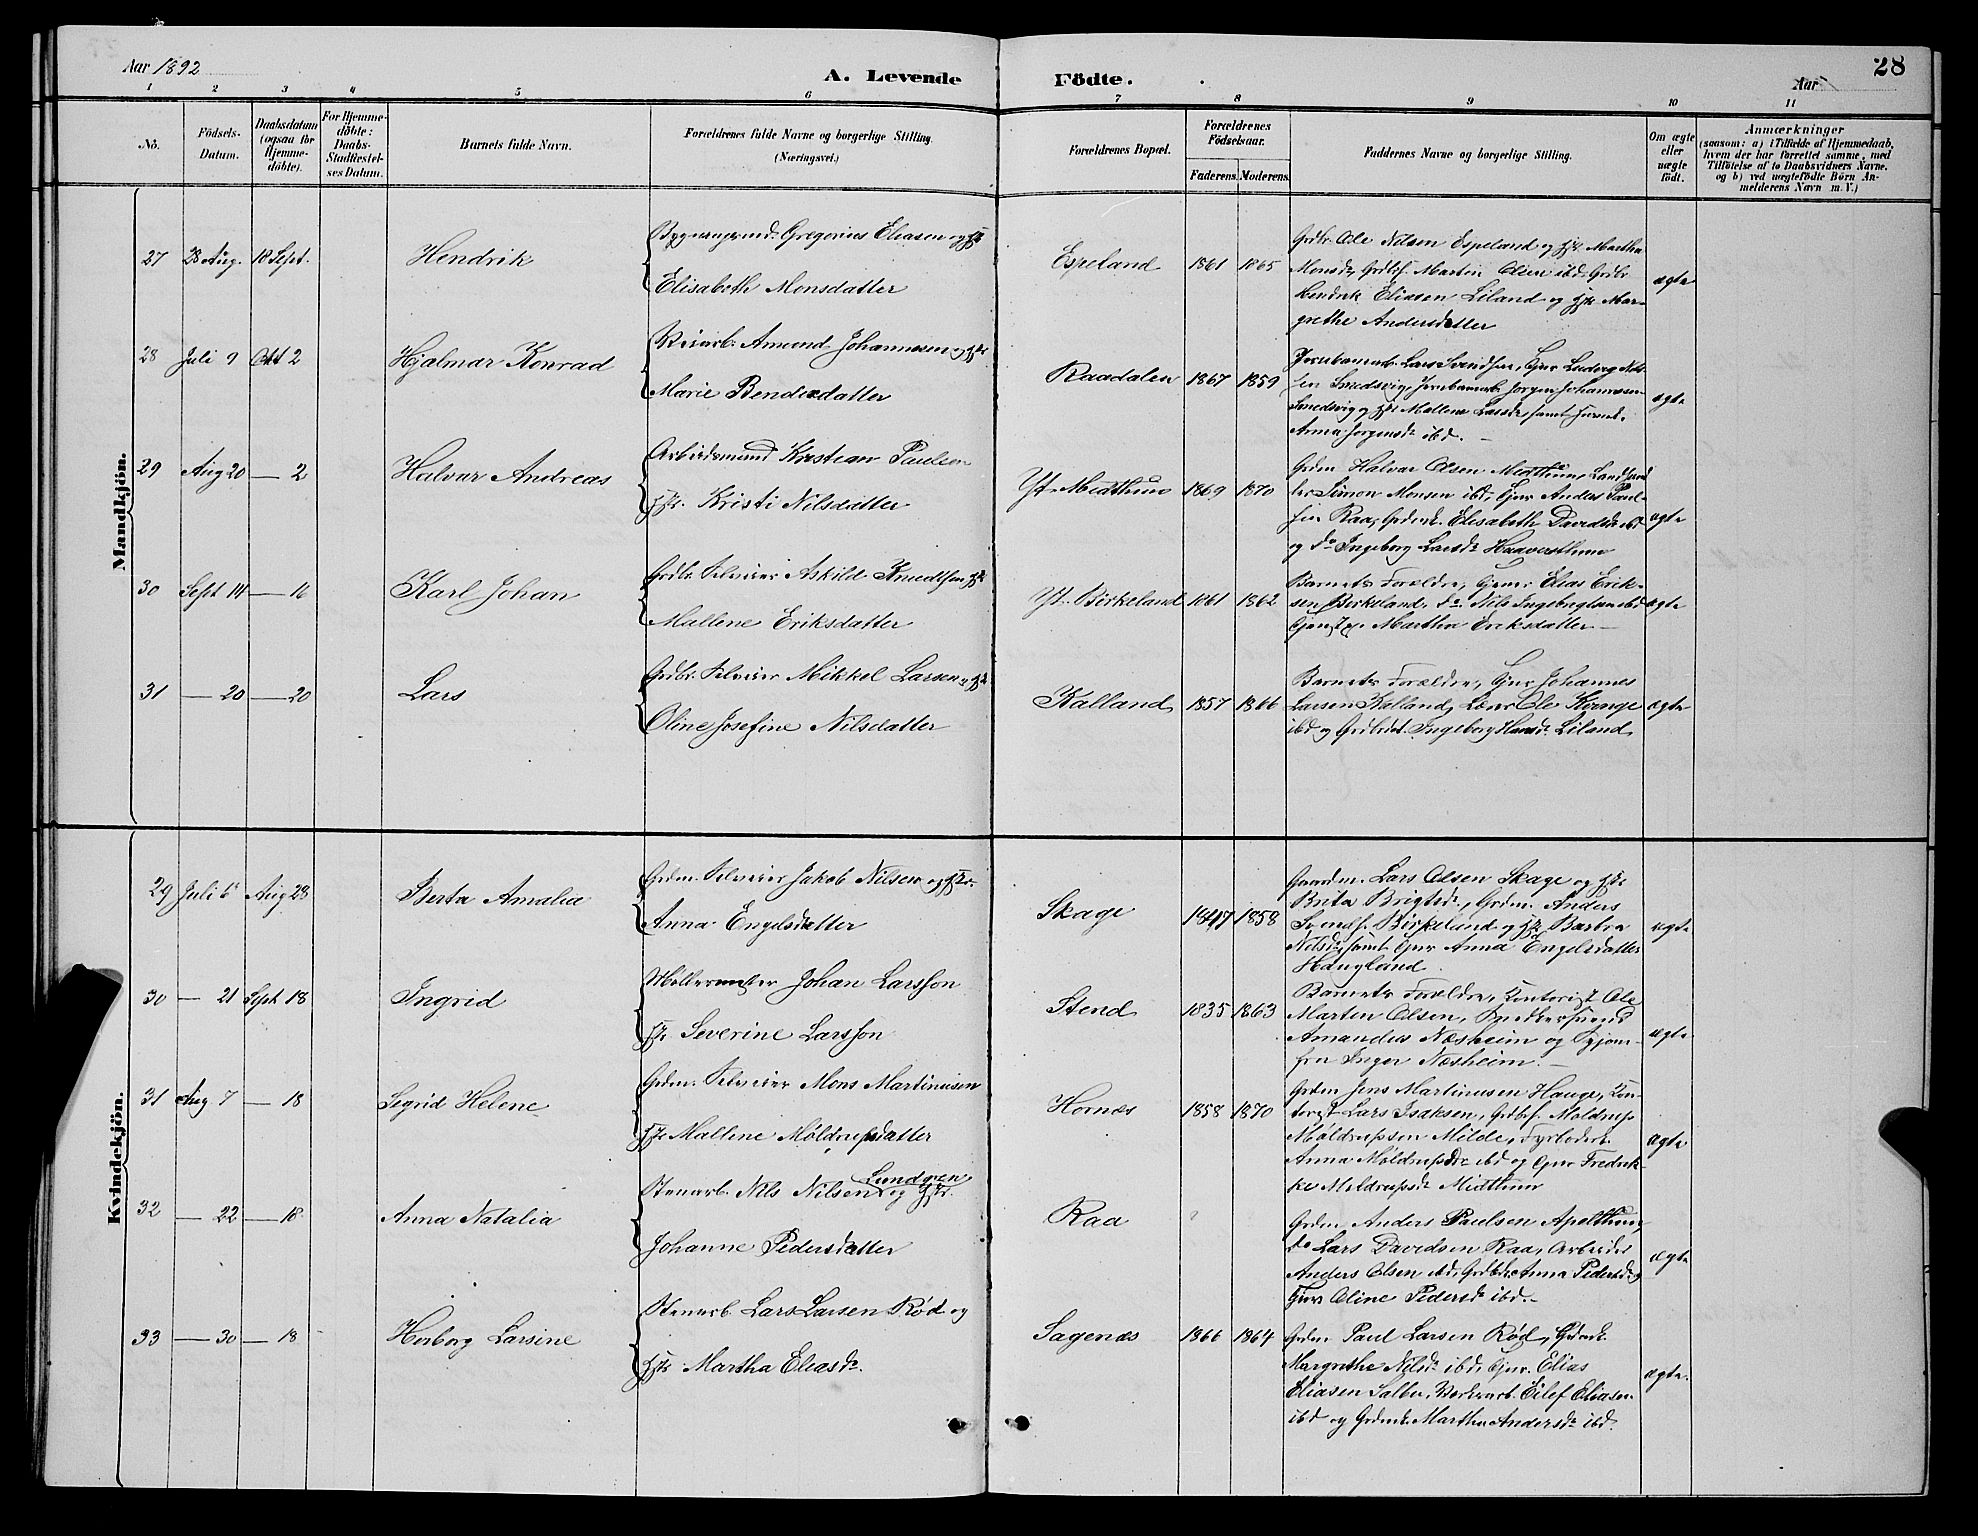 Aar 1892
A. Levende
Födte.
Aar
28
1 2 3 4 5 6 7 8 9 10 11
No.
Födsels-
Datum.
Daabsdatum
(ogsaa for
Hjemme-
döbte).
For Hjemme-
döbte:
Daabs-
Stadfæstel-
ses Datum.
Barnets fulde Navn.
Forældrenes fulde Navne og borgerlige Stilling.
(Næringsvei.)
Forældrenes Bopæl.
Forældrenes
Födselsaar.
Faderens. Moderens.
Faddernes Navne og borgerlige Stilling.
Om ægte
eller
uægte
födt.
Anmærkninger
(saasom: a) i Tilfælde af Hjemmedaab,
hvem der har forrettet samme, med
Tilföielse af to Daabsvidners Navne.
og b) ved uægtefödte Börn An-
melderens Navn m. V.)
Mandkjön.
27 28 Aug. 18 Sept. Hendrik
Gregorius Eliasen og Hst
Elisabeth Monsdatter
Espeland 1861 1865
Grdbr. Ole Nilsen Espeland og Hst Martha
Monsdr Grdbf. Martin Olsen ibd, Grdbr
Hendrik Eliasen Liland og Hst Mar-
grethe Andersdatter
ægte
28 Juli 9 Okt 2 Hjalmar Konrad
Amund Johannesen og Hst
Marie Bendixdatter
Raadalen 1867 1859
Jernbanearb. Lars Svendsen, Gjnr Ludvig Nil-
sen Smedsvig, Jernbanearb Jørgen Johannesen
Smedsvig og Hst Mallene Larsdr, samt
Anna Jørgensdr ibd. —
ægte
29 Aug 20 — 2 Halvar Andreas
Arbeidsmand Kristian Paulsen
Hst. Kristi Nilsdatter
Yt. Midthun 1869 1870
Grdm Halvar Olsen Midthun,
Simon Monsen ibd, Gjnr Anders Paul-
sen Raa, Grdenk. Elisabeth Davidsdr ibd
og do Ingeborg Larsdr
ægte
30 Sept 14 — 16 Karl Johan
Grdbr. Selveier Askild Knudtsen Hst
Mallene Eriksdatter
Yt. Birkeland 1861 1862
Barnets Forældre, Gjnr Elias Erik-
sen Birkeland, do. Nils Ingebrigtsen ibd
Gjenstpe Martha Eriksdatter —
ægte
31 — 20 — 20 Lars
Grdbr. Selveier Mikkel Larsen og Hst
Oline Josefine Nilsdatter
Kalland 1857 1866
Barnets Forældre, Gjnr Johannes
Larsen Kalland, Ole Kvinge
ibd og Ingeborg Hansdr Liland.
ægte
Kvindekjön.
29 Juli 6 Aug 28 Berta Amalia
Grdm. Selveier Jakob Nilsen og Hst.
Anna Engelsdatter
Skage 1847 1858
Gaardm. Lars Olsen Skage og Hst
Brita Brigtsdr, Grdm. Anders
Svends. Birkeland og Hst Barbra
Nilsdr, samt Gjnr Anna Engelsdatter
Haugland.
ægte
30 — 21 Sept 18 Ingrid
Møllermester Johan Larsson
Hst. Severine Larsson
Stend 1835 1863
Barnets Forældre, Kontorist Ole
Martin Olsen, Snedkersvend
Amandus Næsheim og Gjom-
fru Inger Næsheim. —
ægte
31 Aug 7 — 18 Sigrid Helene
Grdm. Selveier Mons Martinusen
Hst Mallene Møldrupsdatter
Hornæs 1858 1870
Grdm Jens Martinusen Hauge, Kon-
torist Lars Isaksen, Grdbf. Møldrup
Møldrupsen Milde,
Anna Møldrupsdr ibd og Gjnr Fredrik-
ke Møldrupsdr Midthun
ægte
32 — 22 — 18 Anna Natalia
Stenarb. Nils Nilsen Lundgren og Hst.
Johanne Pedersdatter
Raa ?
Grdm Anders Paulsen Apelthun,
do Lars Davidsen Raa, Arbeider
Anders Olsen ibd, Anna Pedersdr og
Oline Pedersdr ibd. —
ægte
33 — 30 — 18 Herborg Larsine
Stenarb. Lars Larsen Rød og
Hst Martha Eliasdr.
Sagenæs 1866 1864
Grdm Paul Larsen Rød,
Margrethe Nilsdr ibd, Gjnr. Elias
Eliasen Salbu, Eilef Eliasen
ibd og Martha Andersdr ibd.
ægte.